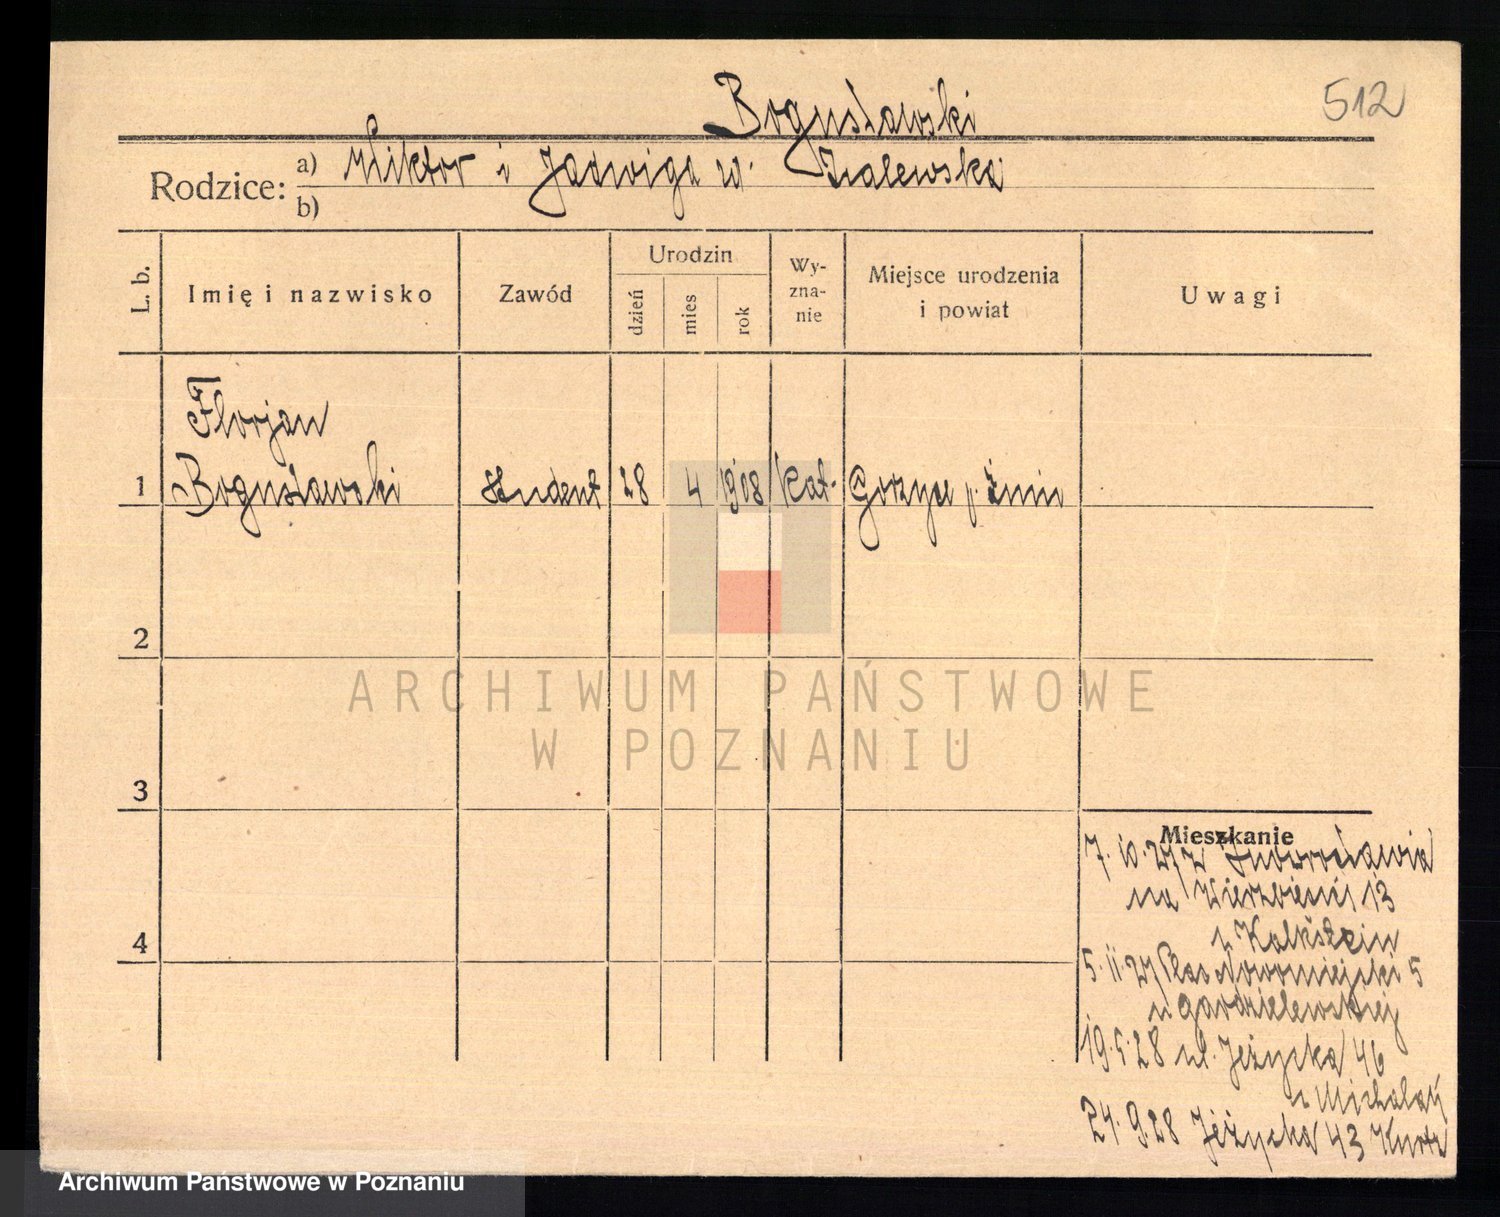 512
Bogusławski
Rodzice: a) Wiktor i Jadwiga ur. Zalewska
b)
L. b. Imię i nazwisko Zawód Urodzin dzień mies rok Wy-zna-nie Miejsce urodzenia i powiat Uwagi
Florjan
1 Bogusławski student 28 4 1908 kat. Gorzyce p. Żnin
2
3
4
Mieszkanie
7.10.27 z Inowrocławia
na Wierzbięcic 13
u Kalkstein
5.11.27 Plac Nowomiejski 5
u Gardzielewskiej
19.5.28 ul. Jeżycka 46
u Michalak
24.9.28 Jeżycka 43 Kurtz
ARCHIWUM PAŃSTWOWE
W POZNANIU
Archiwum Państwowe w Poznaniu